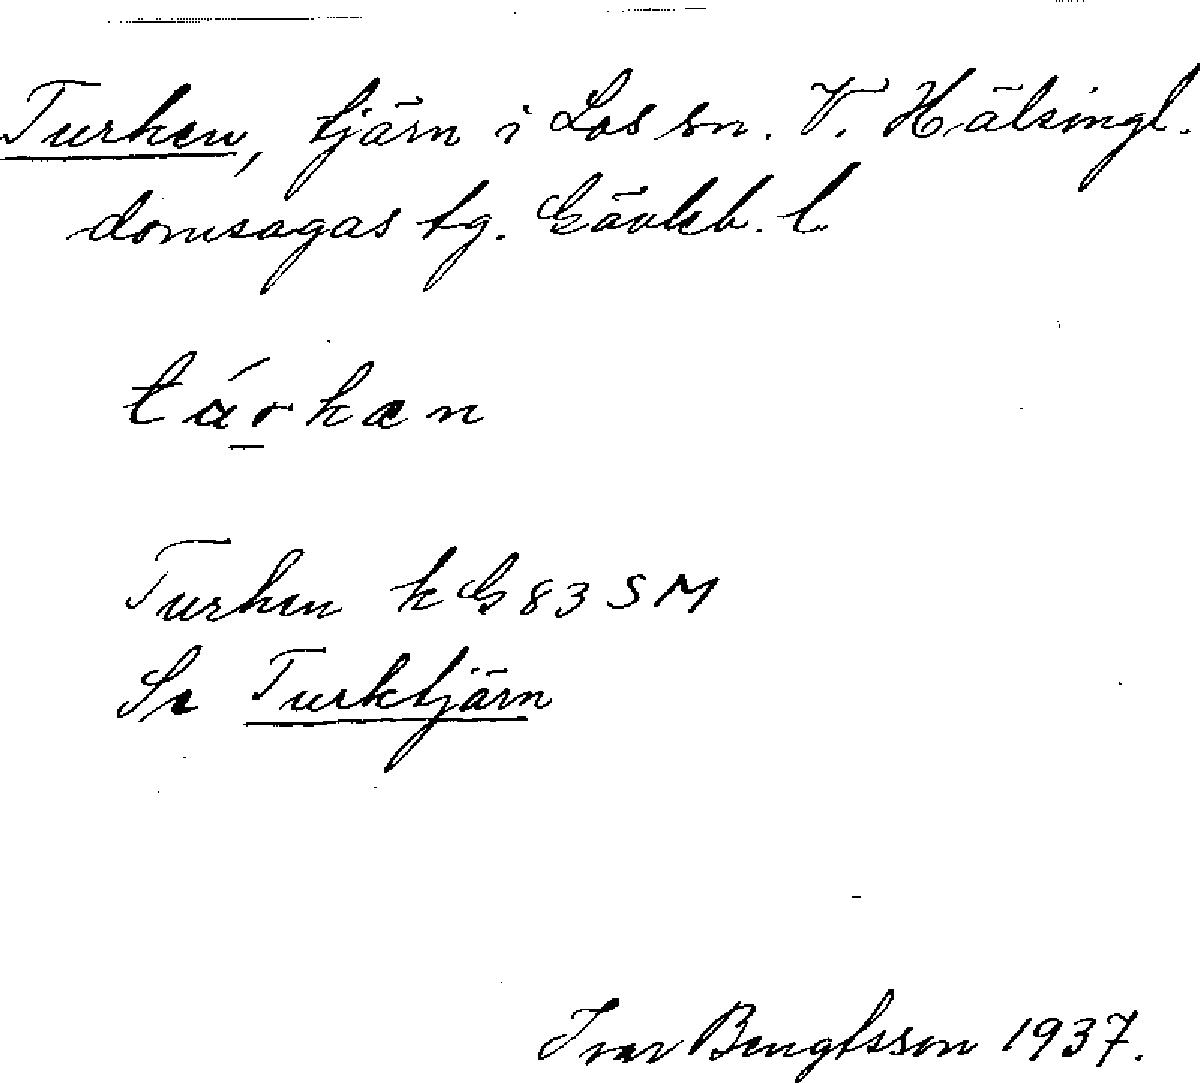 Turken, tjärn i Los sn. V. Hälsingl.
domsagas tg. Gävleb. l.
tárkæn
Turken k G 83 SM
Se Turktjärn
Ivar Bengtsson 1937.